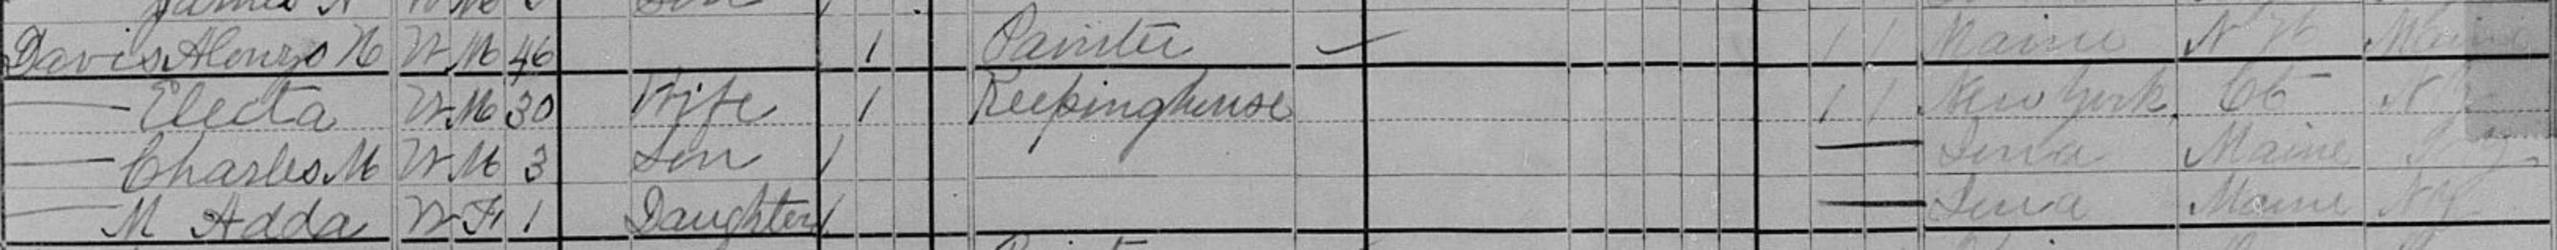 Davis Alonzo N W M 46 1 Painter 1 1 Maine N H Maine
— Electa W M 30 Wife 1 Keepinghouse 1 1 New York Ct N Y
— Charles M W M 3 Son / — Iowa Maine N Y
— M Adda W F 1 Daughter / — Iowa Maine N Y